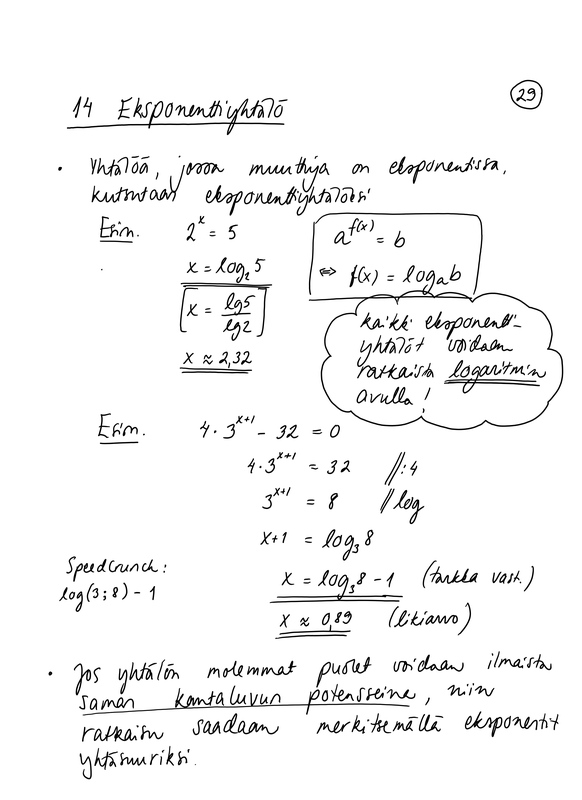 29
14 Eksponenttiyhtälö
• Yhtälöä, jossa muuttuja on eksponentissa,
kutsutaan eksponenttiyhtälöksi
Esim. 2^x = 5
x = log₂5
[x = lg5/lg2]
x ≈ 2,32
a^f(x) = b
⇔ f(x) = logₐb
kaikki eksponentti-
yhtälöt voidaan
ratkaista logaritmin
avulla!
Esim. 4·3^(x+1) - 32 = 0
4·3^(x+1) = 32 //:4
3^(x+1) = 8 //log
x+1 = log₃8
x = log₃8 - 1 (tarkka vast.)
x ≈ 0,89 (likiarvo)
SpeedCrunch:
log(3;8) - 1
• Jos yhtälön molemmat puolet voidaan ilmaista
saman kantaluvun potensseina, niin
ratkaisu saadaan merkitsemällä eksponentit
yhtäsuuriksi.